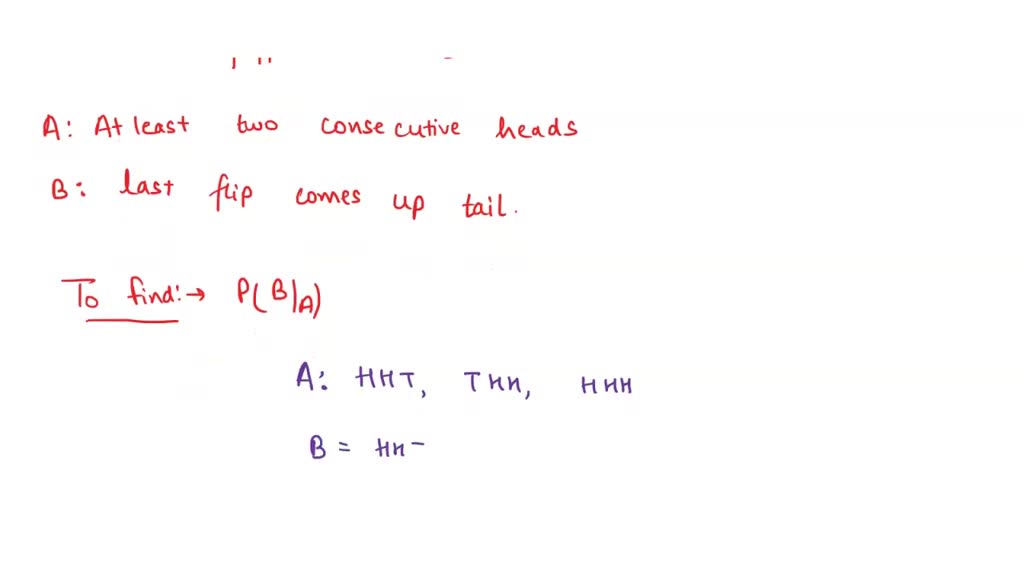 A: At least two consecutive heads
B: last flip comes up tail.
To find:→ P(B|A)
A: HHT, THH, HHH
B = HH